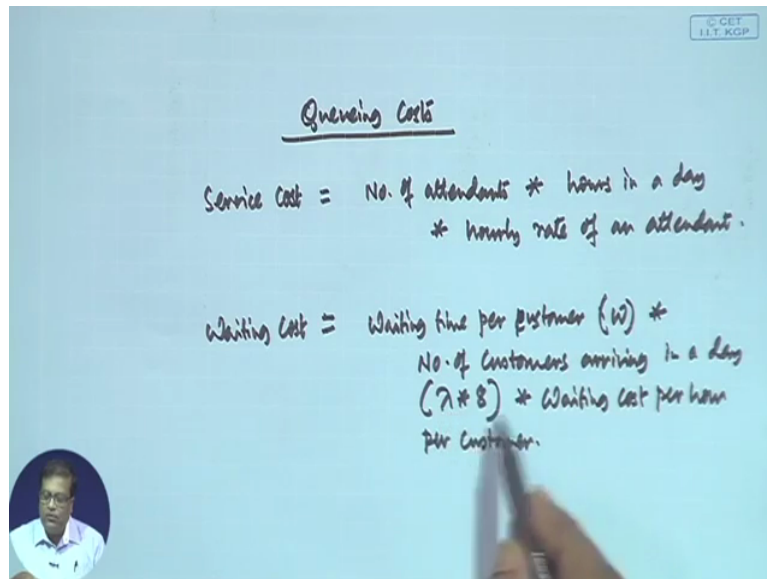 © CET
I.I.T. KGP
Queueing Costs
Service Cost = No. of attendants * hours in a day
* hourly rate of an attendant.
Waiting Cost = Waiting time per customer (W) *
No. of Customers arriving in a day
(λ * 8) * Waiting cost per hour
per customer.